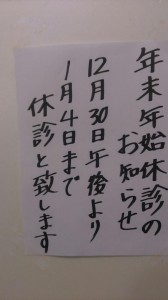 年末年始休診の
お知らせ
12月30日午後より
1月4日まで
休診と致します